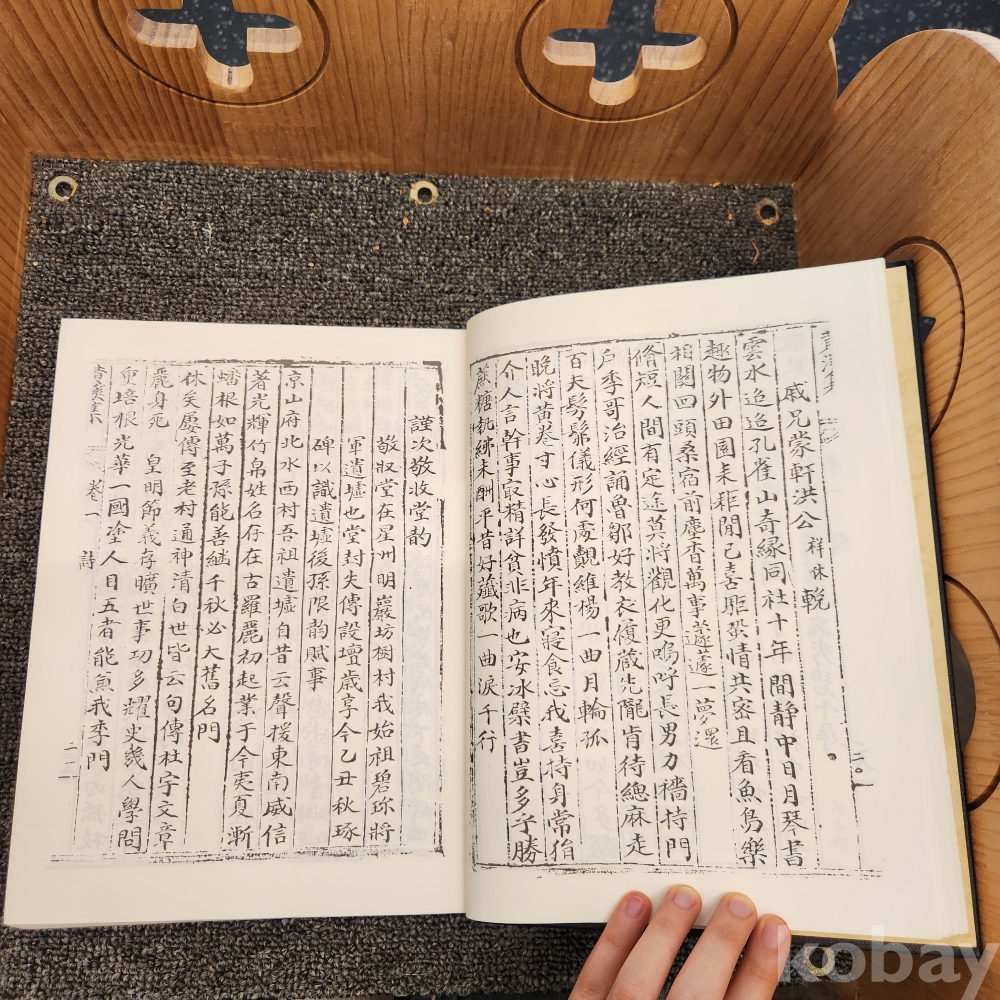 戚兄蒙軒洪公祥休輓
雲水迢迢孔雀山奇緣同社十年間靜中日月琴書
趣物外田園耒耟閒己喜聖
情共密且看魚鳥樂
相關回頭桑宿前塵杳萬事蘧蘧一夢還
脩短人間有定途莫將觀化更嗚呼長男力穡持門
戶季哥治經誦魯鄒好敎衣
蔵先隴肯待緦麻走
百夫髣髴儀形何處覿維楊一曲月輪孤
晩將黃卷寸心長發憤年來寢食忘我喜持身常
介人言幹事取精詳貧非病也安冰檗書豈多乎勝
蔗糖執紼未酬平昔好薤歌一曲淚千行
二〇
謹次敬收堂韵
敬收堂在星州明巖坊樹村我始祖碧珍將
軍遺墟也堂封失傳設壇歲享今乙丑秋琢
碑以識遺墟後孫限韵賦事
京山府北水西村吾祖遺墟自昔云聲援東南威信
著光輝竹帛姓名存在古羅麗初起業于今夷夏漸
蟠根如萬子孫能善繼千秋必大舊名門
休矣屢傳至老村通神清白世皆云句傳杜宇文章
麗身死 皇明節義存曠世事功多耀史幾人學問
重培根光華一國塗人目五者能兼我李門
卷一 詩
二一
kobay